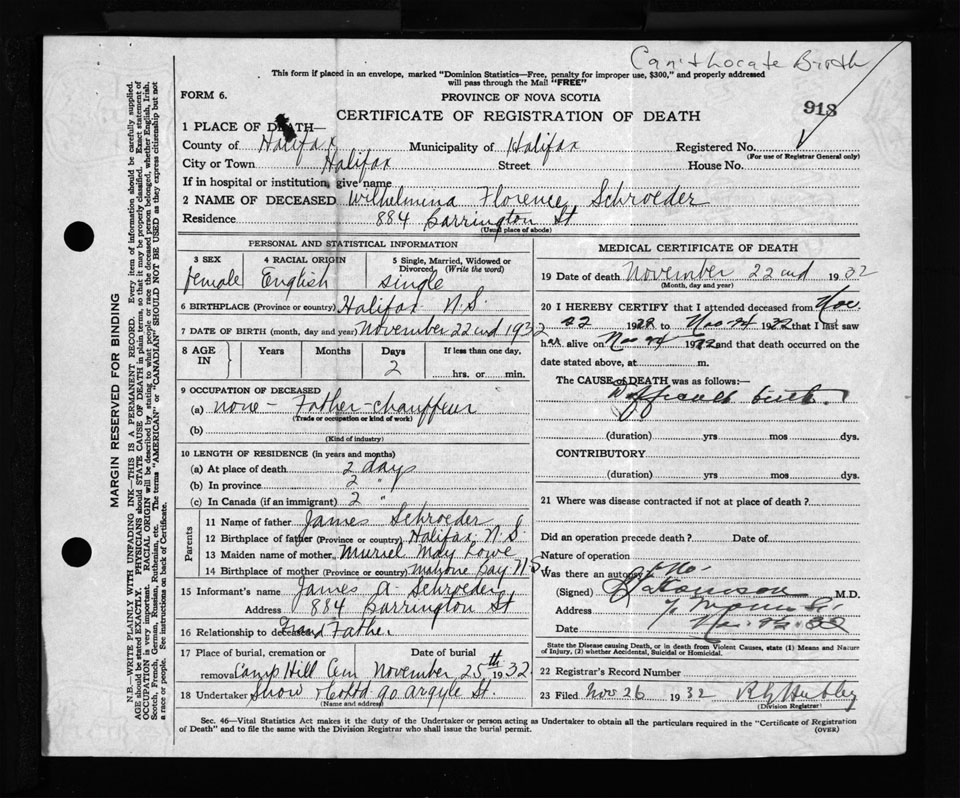 Can't locate Birth
This form if placed in an envelope, marked "Dominion Statistics—Free, penalty for improper use, $300," and properly addressed
will pass through the Mail "FREE"
FORM 6.
PROVINCE OF NOVA SCOTIA
CERTIFICATE OF REGISTRATION OF DEATH
918
1 PLACE OF DEATH—
County of Halifax Municipality of Halifax Registered No.
(For use of Registrar General only)
City or Town Halifax Street House No.
If in hospital or institution, give name
2 NAME OF DECEASED Wilhelmina Florence Schroeder
Residence 884 Barrington St
(Usual place of abode)
PERSONAL AND STATISTICAL INFORMATION
3 SEX 4 RACIAL ORIGIN 5 Single, Married, Widowed or
Divorced (Write the word)
female English single
6 BIRTHPLACE (Province or county) Halifax N.S.
7 DATE OF BIRTH (month, day and year) November 22nd 1932
8 AGE IN Years Months Days If less than one day,
2 hrs. or min.
9 OCCUPATION OF DECEASED
(a) none - Father - chauffeur
(Trade or occupation or kind of work)
(b)
(Kind of industry)
10 LENGTH OF RESIDENCE (in years and months)
(a) At place of death 2 days
(b) In province 2 "
(c) In Canada (if an immigrant) 2 "
Parents
11 Name of father James Schroeder
12 Birthplace of father (Province or county) Halifax N.S.
13 Maiden name of mother Muriel May Lowe
14 Birthplace of mother (Province or country) Mahone Bay N.S.
15 Informant's name James A. Schroeder
Address 884 Barrington St
16 Relationship to deceased Grand Father
17 Place of burial, cremation or Date of burial
removal Camp Hill Cem November 25th 1932
18 Undertaker Snow & Co Ltd 90 Argyle St.
(Name and address)
MEDICAL CERTIFICATE OF DEATH
19 Date of death November 22nd 1932
(Month, day and year)
20 I HEREBY CERTIFY that I attended deceased from Nov.
22 1932 to Nov 24 1932 that I last saw
h alive on Nov 24 1932 and that death occurred on the
date stated above, at m.
The CAUSE of DEATH was as follows:—
Difficult birth.
(duration) yrs mos dys.
CONTRIBUTORY
(duration) yrs mos dys.
21 Where was disease contracted if not at place of death?
Did an operation precede death? Date of
Nature of operation
Was there an autopsy? No.
(Signed) M.D.
Address Morris St.
Date
State the Disease causing Death, or in death from Violent Causes, state (1) Means and Nature
of Injury, (2) whether Accidental, Suicidal or Homicidal.
22 Registrar's Record Number
23 Filed Nov 26 1932
(Division Registrar)
Sec. 46—Vital Statistics Act makes it the duty of the Undertaker or person acting as Undertaker to obtain all the particulars required in the "Certificate of Registration
of Death" and to file the same with the Division Registrar who shall issue the burial permit. (OVER)
MARGIN RESERVED FOR BINDING
N.B.—WRITE PLAINLY WITH UNFADING INK—THIS IS A PERMANENT RECORD. Every item of information should be carefully supplied.
AGE should be stated EXACTLY. PHYSICIANS should STATE CAUSE OF DEATH in plain terms, so that it may be properly classified. Exact statement of
OCCUPATION is very important. RACIAL ORIGIN will be described by stating to what people or race the deceased person belonged, whether English, Irish,
Scotch, French, German, Russian, Ruthenian, etc. The terms "AMERICAN" or "CANADIAN" SHOULD NOT BE USED as they express citizenship but not
a race or people. See instructions on back of Certificate.